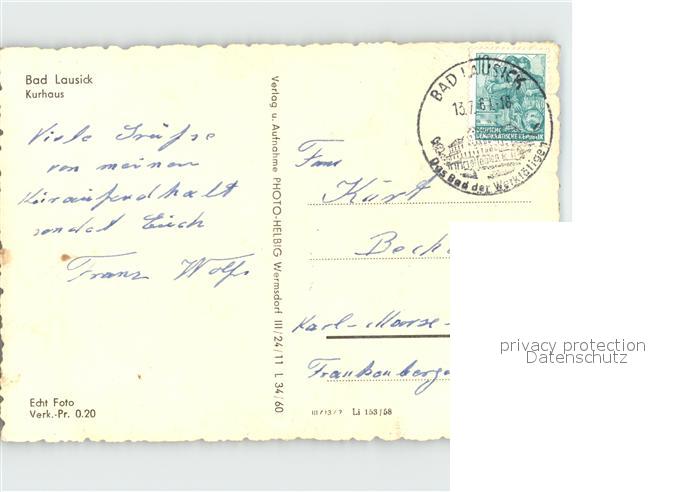 Bad Lausick
Kurhaus
Viele Grüße
von meinem
Kuraufendhalt
sendet Euch
Franz Wolf
Echt Foto
Verk.-Pr. 0.20
Verlag u. Aufnahme PHOTO-HELBIG Wermsdorf III/24/11 L 34/60
BAD LAUSICK
13.7.61-16
Das Bad der Werktätigen
10
DEUTSCHE
DEMOKRATISCHE REPUBLIK
Fam
Kurt
Karl-Marx-
Frankenberge
Li 153/58
privacy protection
Datenschutz